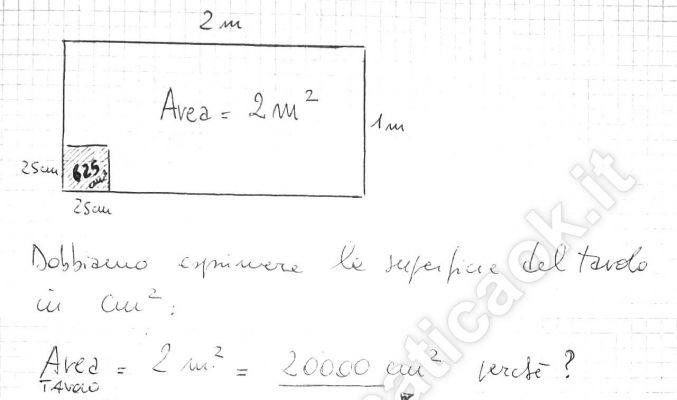 2 m
Area = 2 m²
1 m
25 cm
625 cm²
25 cm
Dobbiamo esprimere la superficie del tavolo
in cm²:
Area = 2 m² = 20000 cm² perché?
TAVOLO